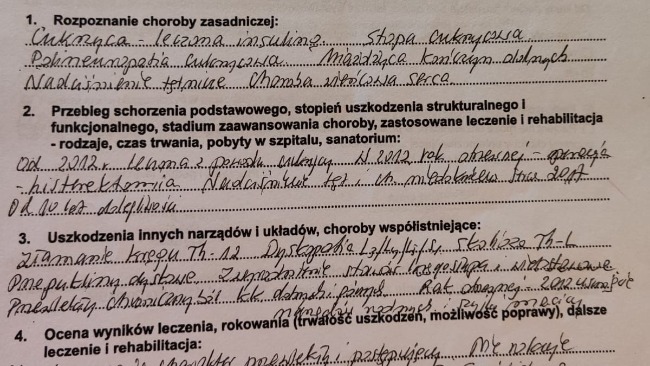 1. Rozpoznanie choroby zasadniczej:
Cukrzyca - leczona insuliną. Stopa cukrzycowa
Polineuropatia cukrzycowa. Miażdżyca kończyn dolnych
Nadciśnienie tętnicze Choroba wieńcowa serca
2. Przebieg schorzenia podstawowego, stopień uszkodzenia strukturalnego i
funkcjonalnego, stadium zaawansowania choroby, zastosowane leczenie i rehabilitacja
- rodzaje, czas trwania, pobyty w szpitalu, sanatorium:
Od 2012 r leczona z powodu cukrzycy W 2012 rak - operacja
- histerektomia Nadciśnienie tęt i ch 2017
Od 10 lat dolegliwości
3. Uszkodzenia innych narządów i układów, choroby współistniejące:
Złamanie kręgu Th-12 Dyskopatia skolioza Th-L
Przepukliny dyskowe Zwyrodnienie stawów kręgosłupa i
Przewlekły ból Rak - 2012
narządów rodnych i szyjki macicy
4. Ocena wyników leczenia, rokowania (trwałość uszkodzeń, możliwość poprawy), dalsze
leczenie i rehabilitacja:
charakter przewlekły i postępujący Nie rokuje